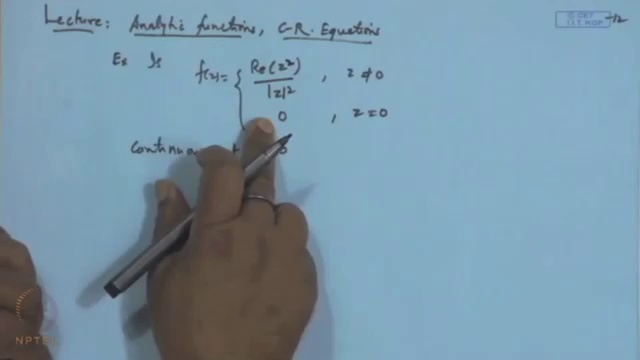 Lecture: Analytic functions, C-R. Equations
Ex Is f(z) = { Re(z²) / |z|² , z ≠ 0
0 , z = 0
© CET
I.I.T. KGP
NPTEL